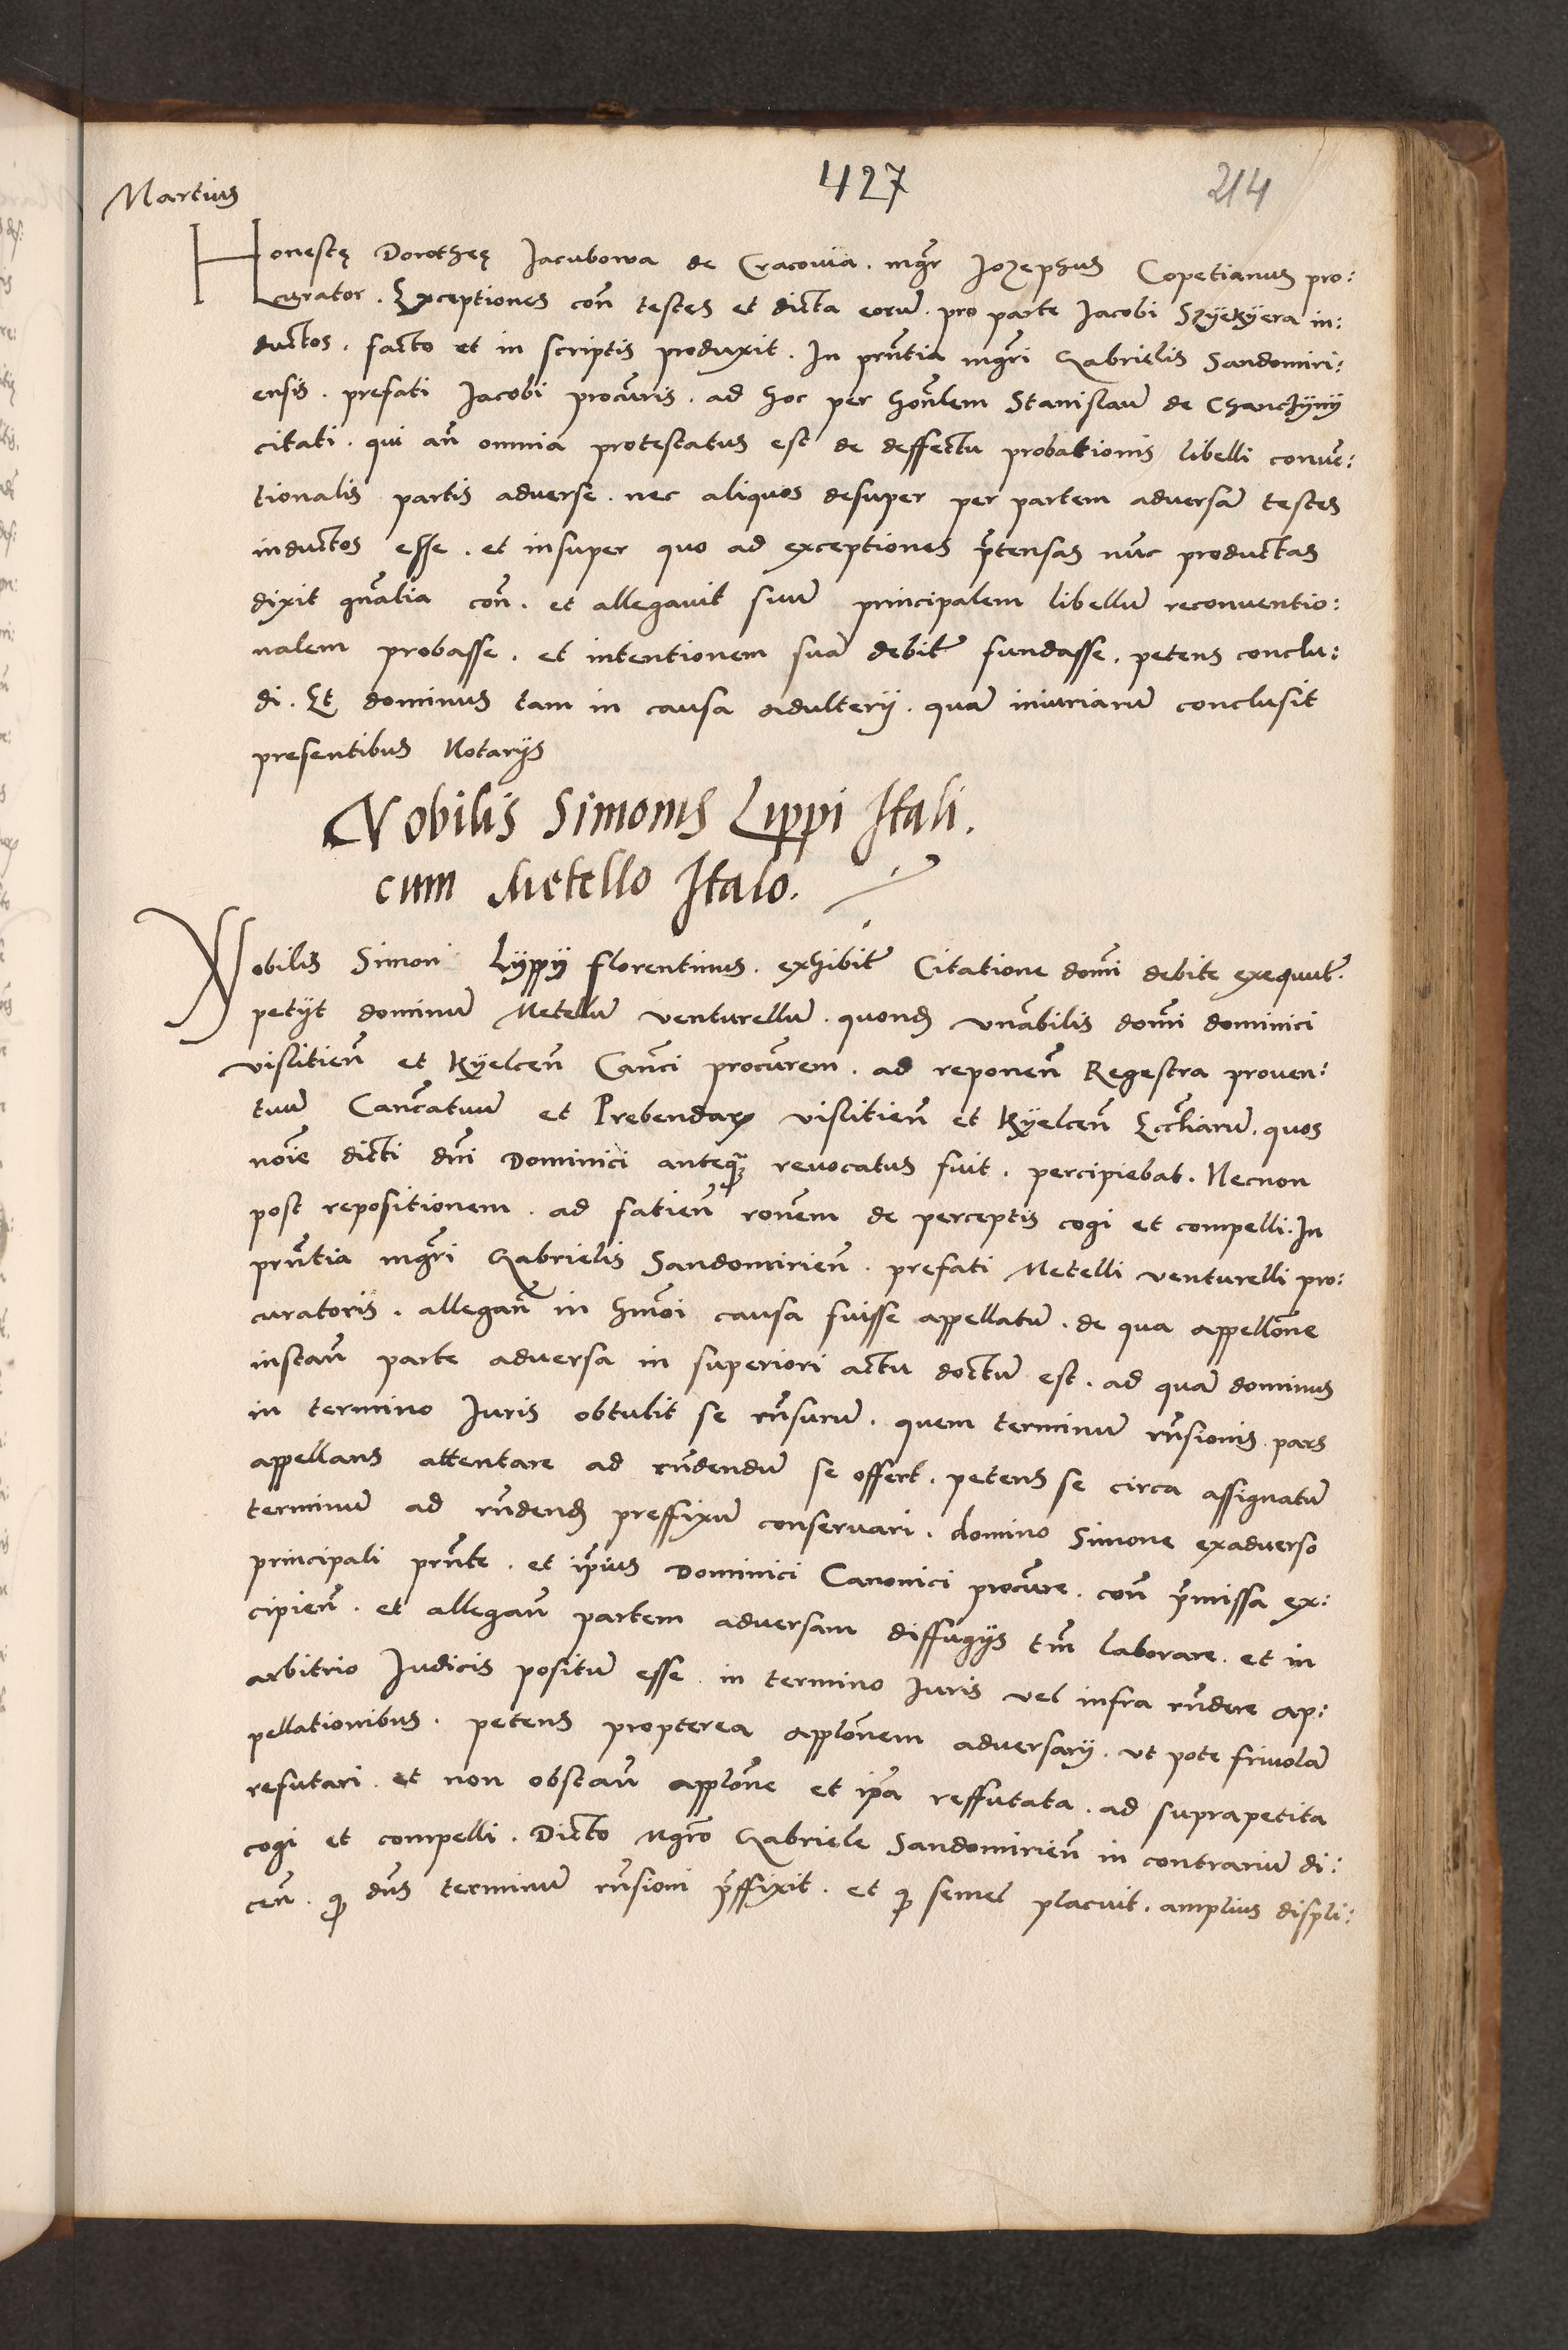 Martius
427
214
Honestę Dorotheę Jacubowa de Cracovia. mgr̃ Jozephus Copetianus pro:
curator. Exceptiones con̄ testes et dicta eorū. pro parte Jacobi Szyekyera in:
ductos. facto et in scriptis produxit. In prñtia mgr̃i Gabrielis Sandomiri:
ensis. prefati Jacobi procur̃is. ad hoc per hon̄lem Stanislaū de Chanczyny
citati. qui an̄ omnia protestatus est de deffectu probationis libelli convē:
tionalis partis adverse. nec aliquos desuper per partem adversā testes
inductos esse. et insuper quo ad exceptiones p̃tensas nūc productas
dixit gn̄alia con̄. et allegavit suū principalem libellū reconventio:
nalem probasse. et intentionem suā debit̃ fundasse. petens conclu:
di. Et dominus tam in causa adulterij. quā iniuriarū conclusit
presentibus Notarijs
Nobilis Simonis Lippi Itali.
cum Metello Italo.
Nobilis Simon Lyppy florentinus. exhibit̃ Citatione dom̃i debite exequut̃.
petijt dominū Metellū venturellū. quond̃ vn̄abilis dom̃i dominici
vislitien̄ et Kyelcen̄ Can̄ci procur̃em. ad reponen̄ Regestra proven:
tuū Can̄catuū et Prebendarꝝ vislitien̄ et Kyelcen̄ Ecc̄liarū. quos
noīe dicti dn̄i Dominici anteq̃ȝ revocatus fuit. percipiebat. Necnon
post repositionem. ad fatien̄ ron̄em de perceptis cogi et compelli. In
prñtia mgr̃i Gabrielis Sandomirien̄. prefati Metelli venturelli pro:
curatoris. allegan̄ in hm̄oi causa fuisse appellatū. de qua appellon̄e
instan̄ parte adversa in superiori actu doctū est. ad quā dominus
in termino Juris obtulit se rn̄surū. quem terminū rn̄sionis pars
appellans attentare ad rn̄dendū se offert. petens se circa assignatū
terminū ad rn̄dend̃ preffixū conservari. domino Simone exadverso
principali prñte. et ip̄ius Dominici Canonici procur̃e. con̄ p̃missa ex:
cipien̄. et allegan̄ partem adversam diffugijs tm̄ laborare. et in
arbitrio Judicis positū esse in termino Juris vel infra rn̄dere ap:
pellationibus. petens propterea applon̄em adversarij. ut pote frivolā
refutari. et non obstan̄ applon̄e et ip̄a reffutata. ad suprapetita
cogi et compelli. Dicto mgr̃o Gabriele Sandomirien̄ in contrariū di:
cen̄. ꝙ dn̄s terminū rn̄sioni p̃ffixit. et ꝙ semel placuit. amplius displi: